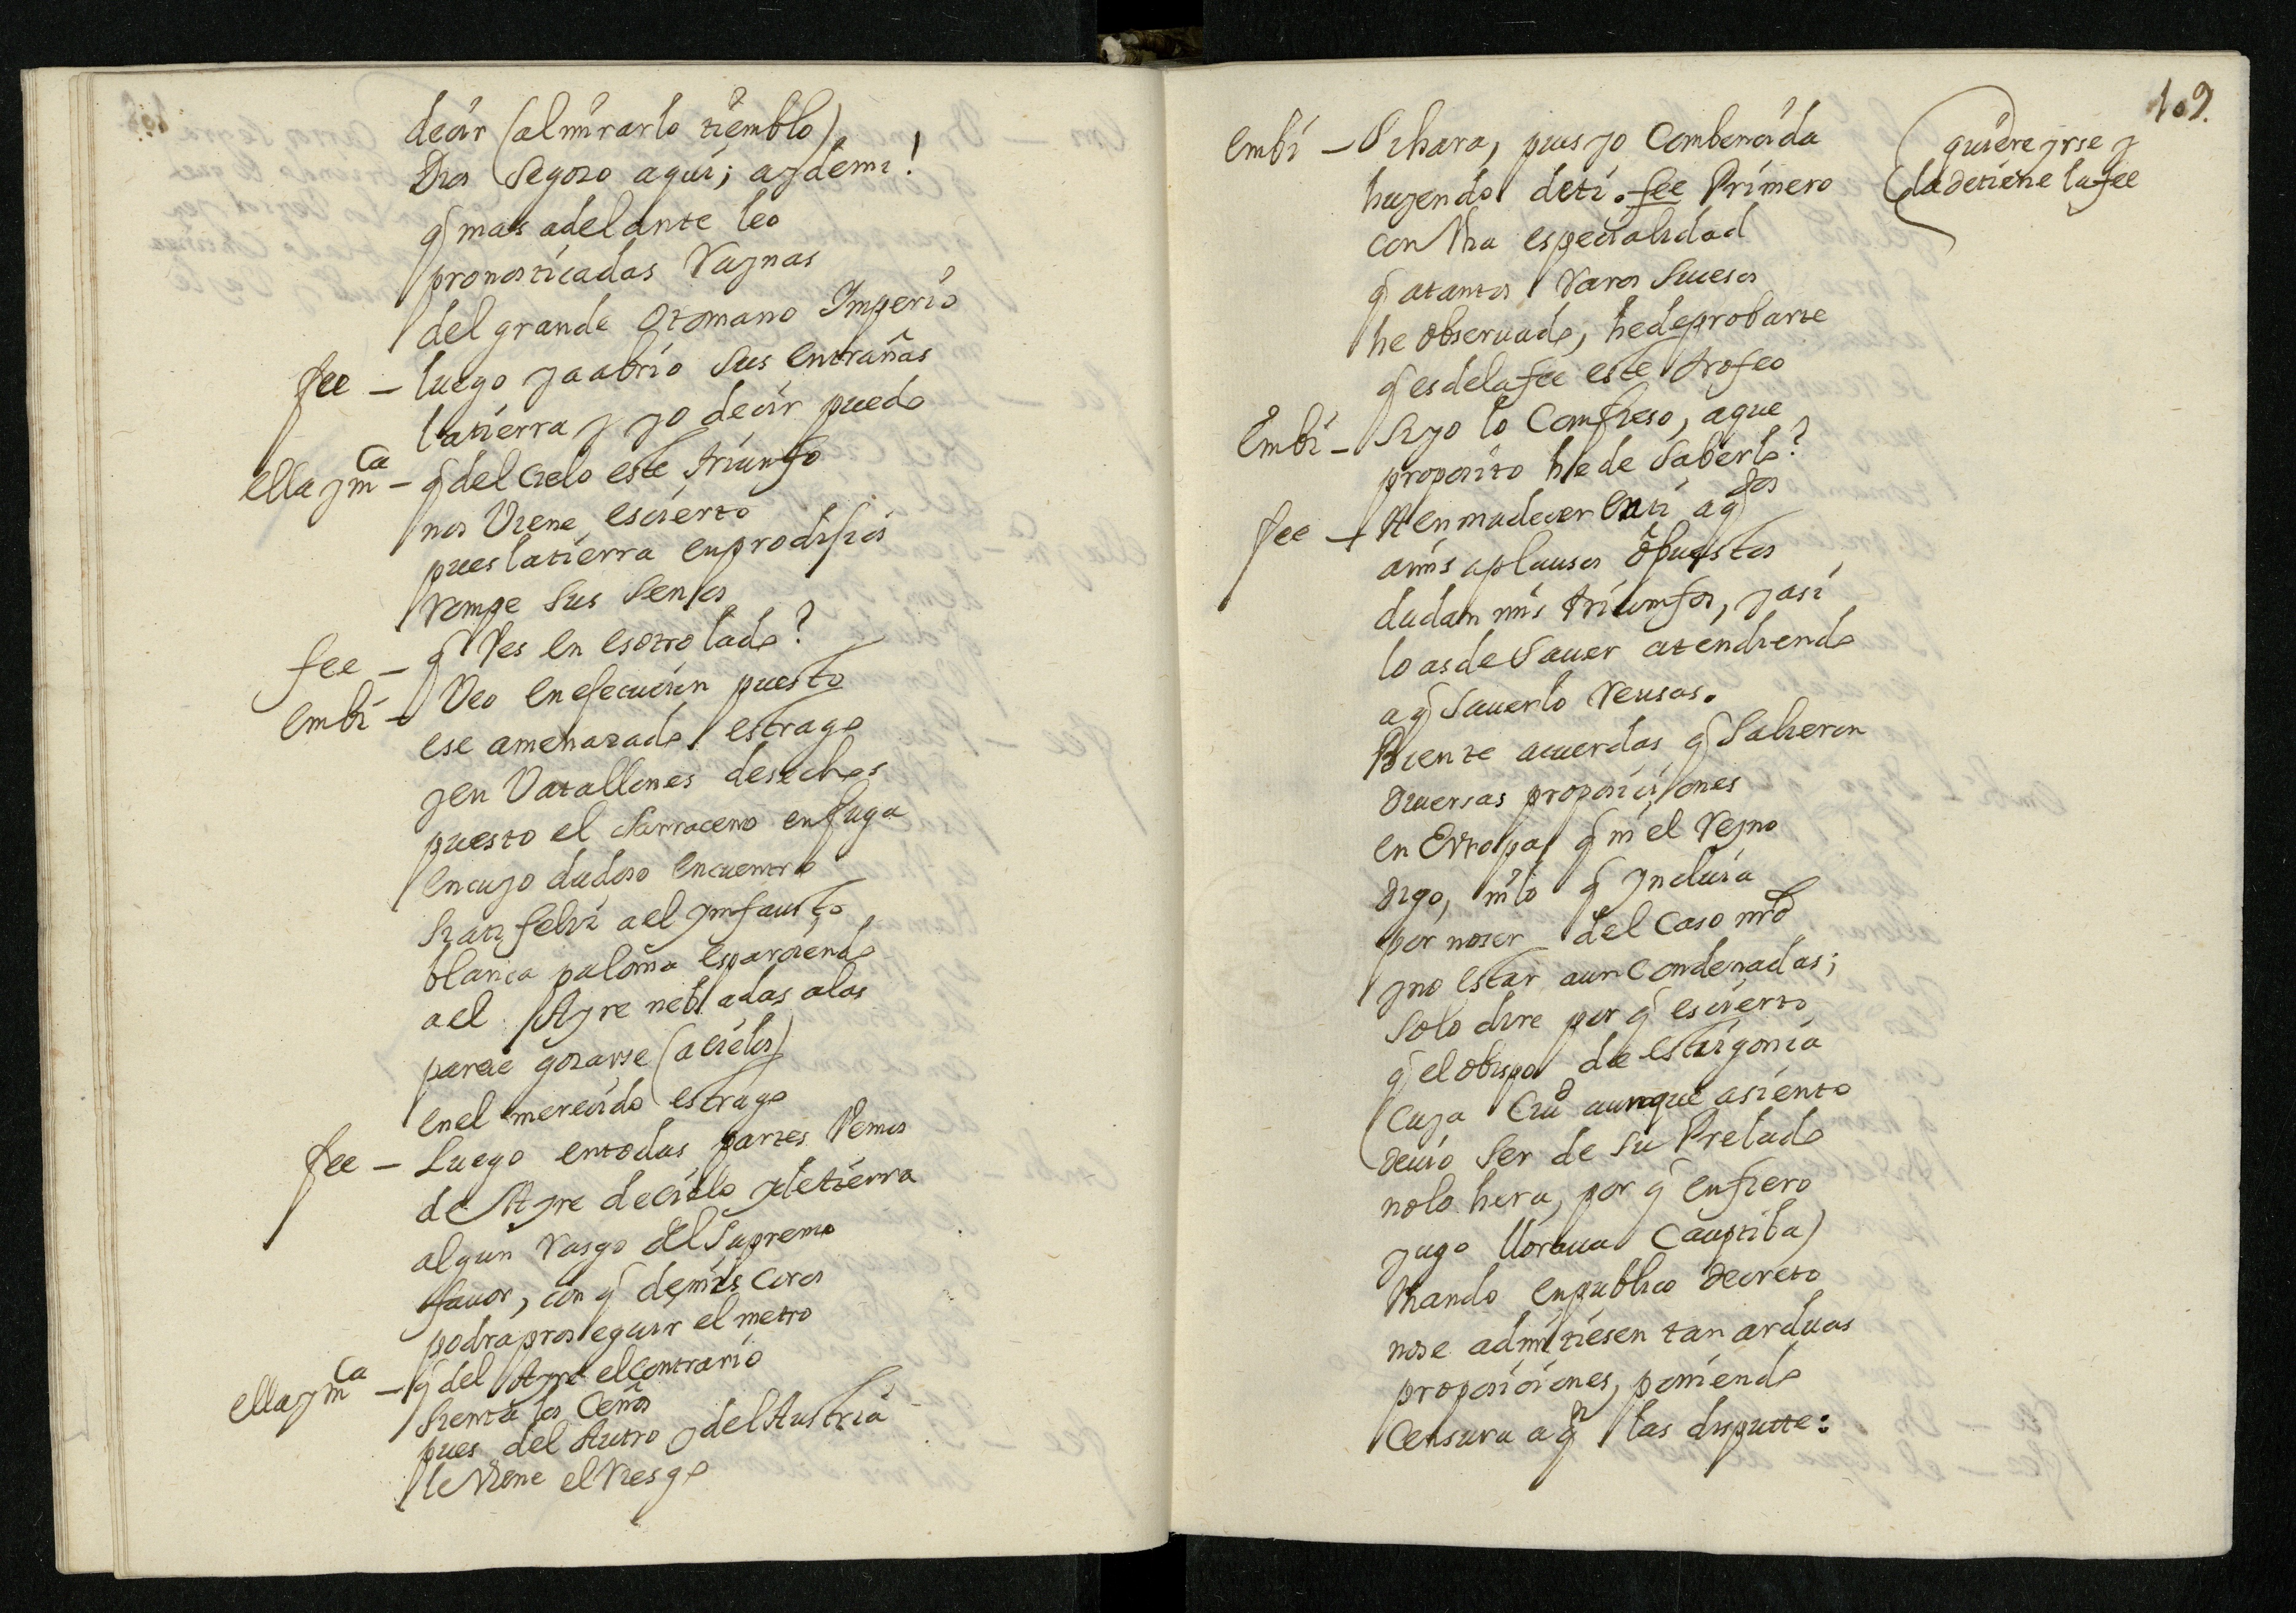 decir (al mirarlo tiemblo)
Dios se gozo aqui; ay de mi!
q mas adelante leo
pronosticadas Raynas
del grande Otomano Imperio
fee - luego ya abrio sus entrañas
la tierra y yo decir puedo
ella y m^ca - q del cielo este triunfo
nos Viene, es cierto
pues la tierra en prodijios
rompe sus senos
fee - q Ves en esotro lado?
embi - Veo en ejecucion puesto
ese amenazado estrago
y en Vatallones desechos
puesto el Sarraceno en fuga
en cuyo dudoso encuentro
si a ti feliz a el ynfausto
blanca paloma esparciendo
a el Ayre nebadas alas
parece gozarse (a cielos)
en el merecido estrago
fee - Luego en todas partes Vemos
de Ayre de cielo y de tierra
algun rasgo del Supremo
fauor, con q de mis coros
podra proseguir el metro
ella y m^ca - q del Ayre el contrario
sienta los Ceños
pues del Austro y del Austria
le Viene el Riesgo
109.
embi - Si hara, pues yo Combencida
huyendo de ti. fee Primero
(quiere yrse y
la detiene la fee
con Vna especialidad
q a tantos raros sucesos
he obseruado, he de probarte
q es de la fee este trofeo
Embi - Si yo lo Confieso, a que
proposito he de saberlo?
fee - A enmudecer en ti a q^dos
a mis aplausos opuestos
dudan mis triumfos, y asi
lo as de sauer atendiendo
a q sauerlo reusas.
Bien te acuerdas q salieron
diuersas proposiciones
en Europa, q ni el Reyno
digo, ni lo q ynclu̇ia
por no ser del caso nrõ
y no estar aun condenadas;
solo dire por q es cierto
q el obispo de estrigonia
(cuya Ciu^d aunque asiento
deuio ser de su Prelado
no lo hera, por q en fiero
yugo lloraua Cauptiba)
Mando en publico decreto
no se admitiesen tan arduas
proposiciones, poniendo
Censura a q^n las dispute: